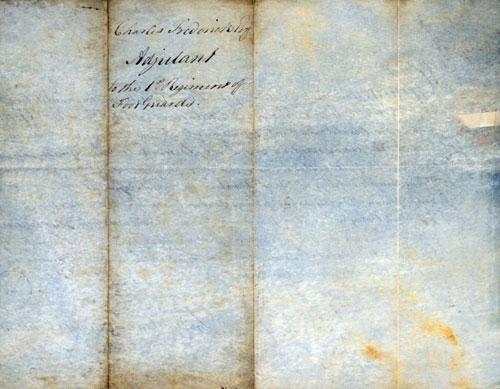 Charles Frederick Esq
Adjutant
to the 1st Regiment of
Foot Guards.